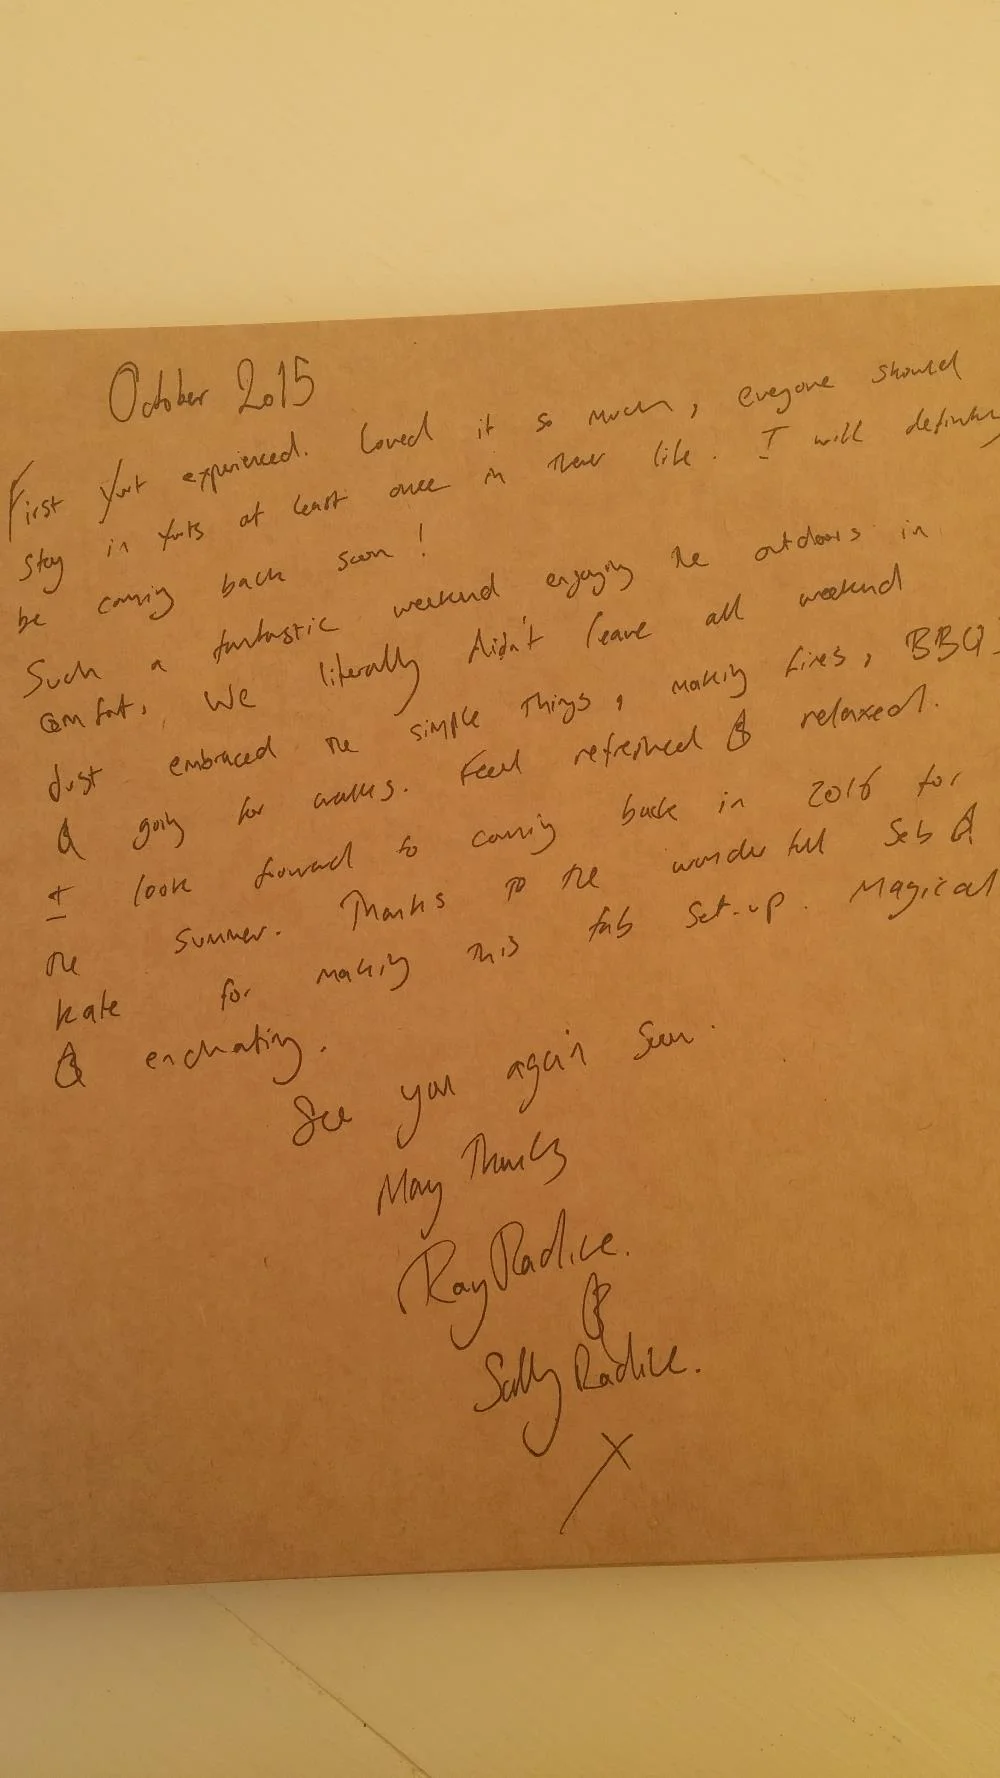 October 2015
First Yurt experienced. Loved it so much, everyone should
stay in Yurts at least once in their life. I will definitely
be coming back soon!
Such a fantastic weekend enjoying the outdoors in
comfort. We literally didn't leave all weekend
Just embraced the simple things, making fires, BBQ's
& going for walks. Feel refreshed & relaxed.
I look forward to coming back in 2016 for
the summer. Thanks to the wonderfull Seb &
Kate for making this fab set-up. Magical
& enchating.
See you again soon.
Many Thanks
Ray Radice.
&
Sally Radice.
X